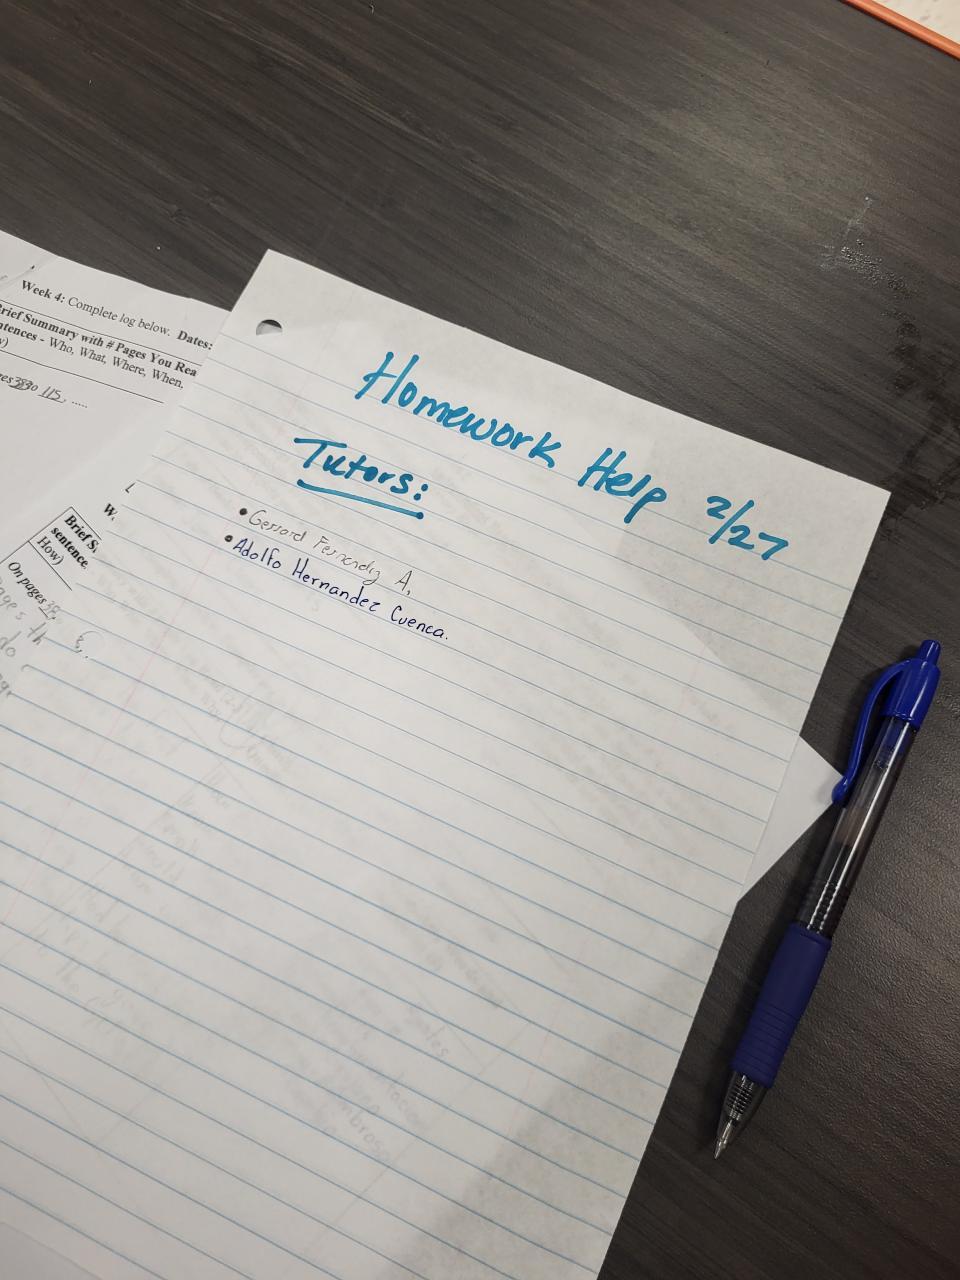 Week 4: Complete log below. Dates:
Brief Summary with # Pages You Rea
ntences - Who, What, Where, When,
115, .....
Homework Help 2/27
Tutors:
• Gerrard Fernandez A,
• Adolfo Hernandez Cuenca.
W.
Brief S
sentence.
How)
On pages